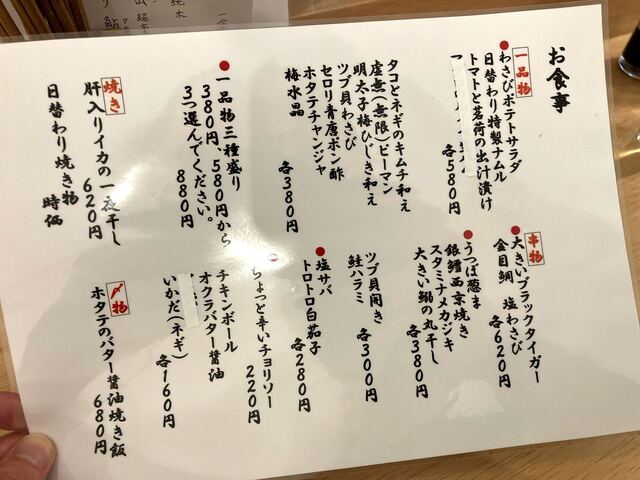 お食事
一品物
●わさびポテトサラダ
日替わり特製ナムル
トマトと茗荷の出汁漬け
各580円
タコとネギのキムチ和え
虚無(無限)ピーマン
明太子梅ひじき和え
ツブ貝わさび
セロリ青唐ポン酢
ホタテチャンジャ
梅水晶
各380円
●一品物三種盛り
380円、580円から
3つ選んでください。
880円
焼き
肝入りイカの一夜干し
620円
日替わり焼き物
時価
串物
●大きいブラックタイガー
金目鯛 塩わさび
各620円
●うつぼ葱ま
銀鱈西京焼き
スタミナメカジキ
大きい鰯の丸干し
各380円
ツブ貝開き
鮭ハラミ
各300円
●塩サバ
トロトロ白茄子
各280円
ちょっと辛いチョリソー
220円
チキンボール
オクラバター醤油
いかだ(ネギ)
各160円
〆物
ホタテのバター醤油焼き飯
680円